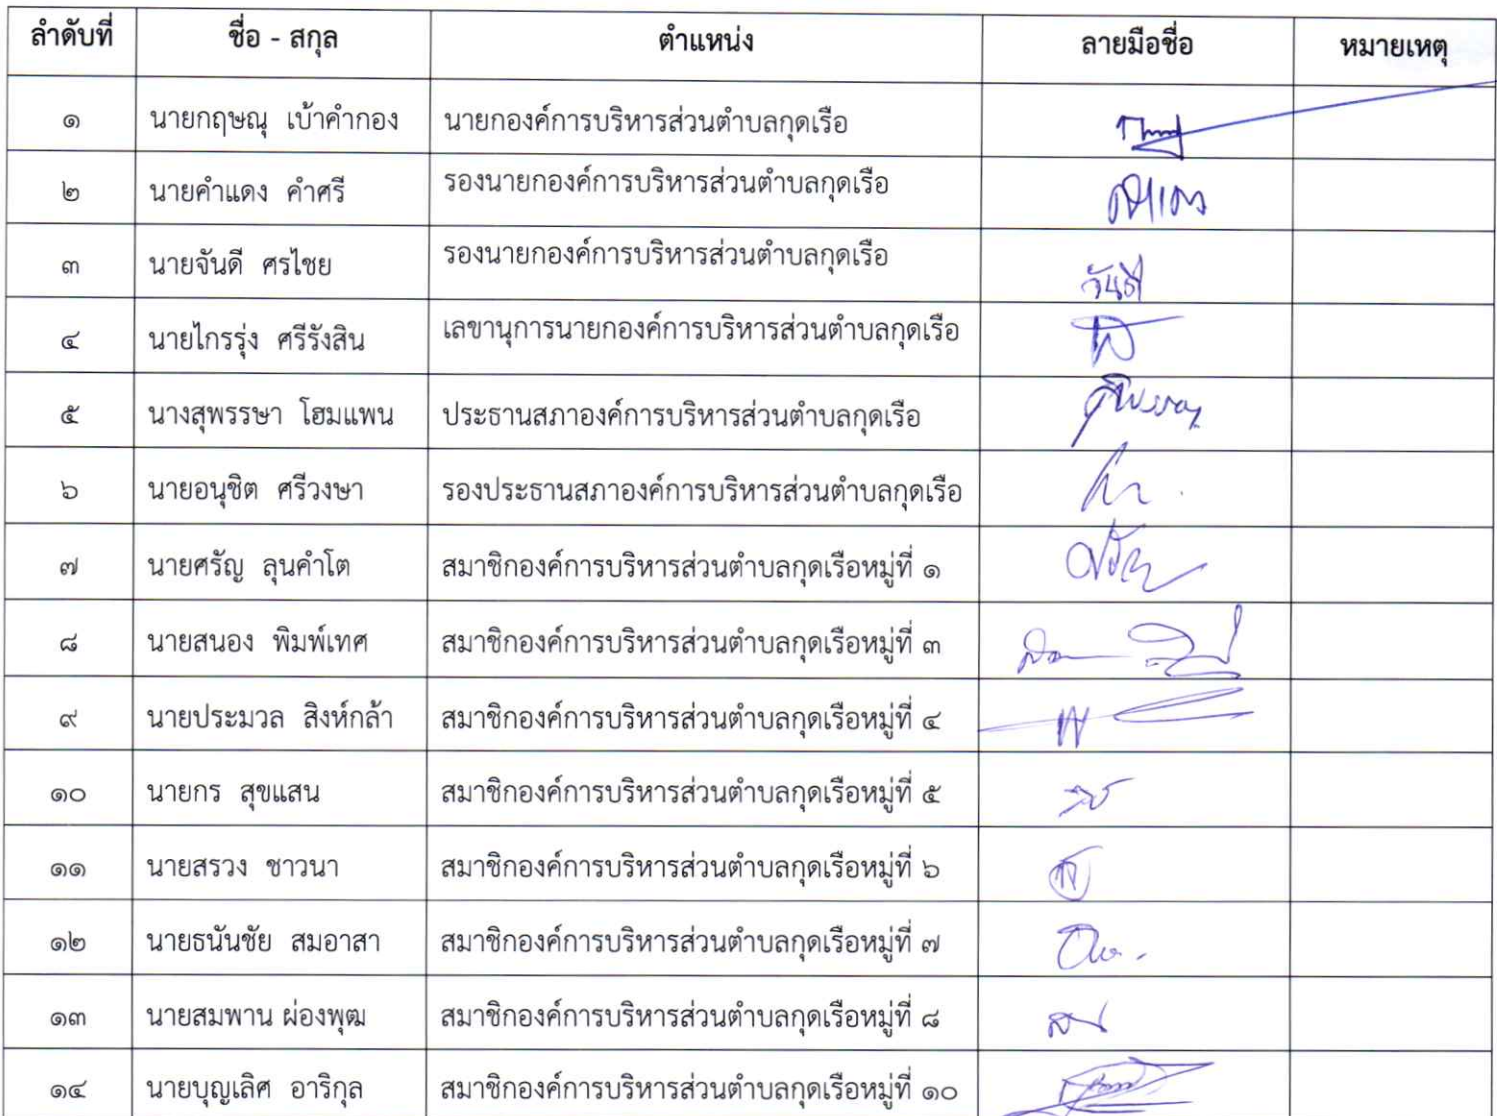 ลำดับที่ ชื่อ - สกุล ตำแหน่ง ลายมือชื่อ หมายเหตุ
๑ นายกฤษณุ เบ้าคำกอง นายกองค์การบริหารส่วนตำบลกุดเรือ
๒ นายคำแดง คำศรี รองนายกองค์การบริหารส่วนตำบลกุดเรือ
๓ นายจันดี ศรไชย รองนายกองค์การบริหารส่วนตำบลกุดเรือ
๔ นายไกรรุ่ง ศรีรังสิน เลขานุการนายกองค์การบริหารส่วนตำบลกุดเรือ
๕ นางสุพรรษา โฮมแพน ประธานสภาองค์การบริหารส่วนตำบลกุดเรือ
๖ นายอนุชิต ศรีวงษา รองประธานสภาองค์การบริหารส่วนตำบลกุดเรือ
๗ นายศรัญ ลุนคำโต สมาชิกองค์การบริหารส่วนตำบลกุดเรือหมู่ที่ ๑
๘ นายสนอง พิมพ์เทศ สมาชิกองค์การบริหารส่วนตำบลกุดเรือหมู่ที่ ๓
๙ นายประมวล สิงห์กล้า สมาชิกองค์การบริหารส่วนตำบลกุดเรือหมู่ที่ ๔
๑๐ นายกร สุขแสน สมาชิกองค์การบริหารส่วนตำบลกุดเรือหมู่ที่ ๕
๑๑ นายสรวง ชาวนา สมาชิกองค์การบริหารส่วนตำบลกุดเรือหมู่ที่ ๖
๑๒ นายธนันชัย สมอาสา สมาชิกองค์การบริหารส่วนตำบลกุดเรือหมู่ที่ ๗
๑๓ นายสมพาน ผ่องพุฒ สมาชิกองค์การบริหารส่วนตำบลกุดเรือหมู่ที่ ๘
๑๔ นายบุญเลิศ อาริกุล สมาชิกองค์การบริหารส่วนตำบลกุดเรือหมู่ที่ ๑๐